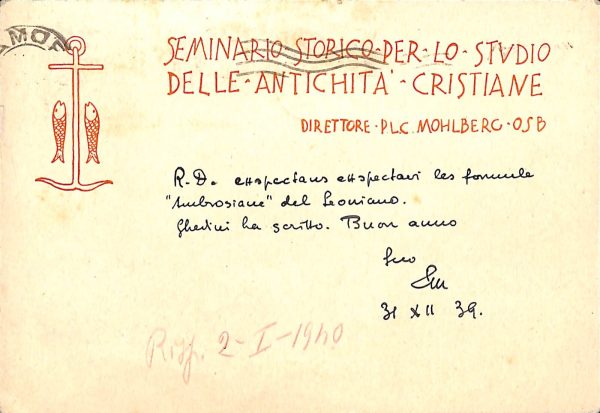 SEMINARIO STORICO·PER·LO·STVDIO
DELLE·ANTICHITA'·CRISTIANE
DIRETTORE·P.L.C. MOHLBERG·OSB
R.D. exspectans exspectavi les formule
"Ambrosiane" del Leoniano.
Ghedini ha scritto. Buon anno
Suo
31 XII 39.
Risp. 2-I-1940